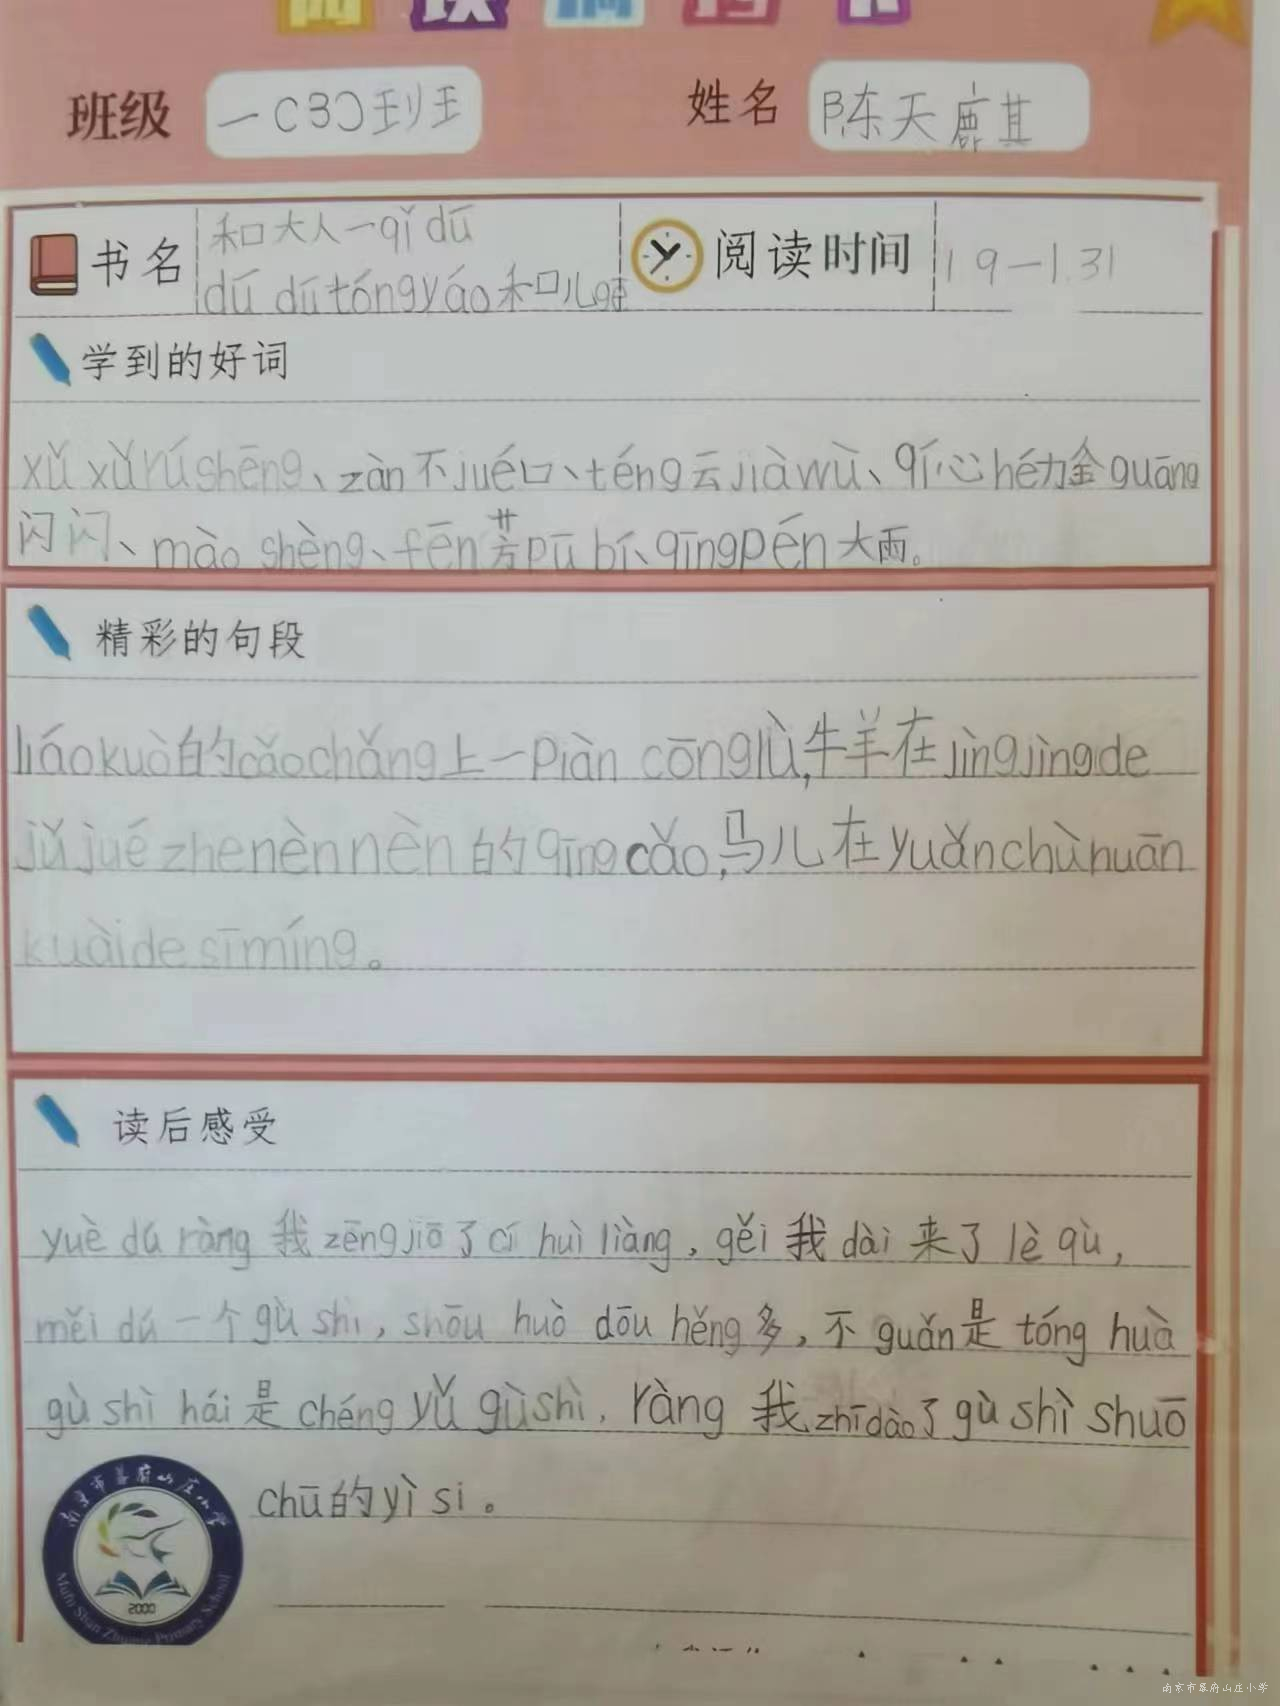 班级 一(3)班 姓名 陈天麒
书名 和大人一qǐ dú
dú dú tóngyáo和儿gē 阅读时间 1 9—1.31
学到的好词
xǔ xǔ rú shēng、zàn不jué口、téng云jiàwù、qí心hé力、金guāng
闪闪、mào shèng、fēn芳pū bí、qīngpén大雨。
精彩的句段
liáokuò的cǎochǎng上一piàn cōnglǜ,牛羊在jìngjìngde
jǔjuézhenènnèn的qīngcǎo,马儿在yuǎnchùnuān
kuàidesīmíng。
读后感受
yuè dú ràng 我 zēngjiā了cí huì liàng,gěi 我 dài 来了 lè qù,
měi dú 一个gù shi,shōu huò dōu hěng多,不 guǎn是 tóng huà
gù shì hái 是 chéng yǔ gùshì,ràng 我 zhīdào了gù shì shuō
chū的yì si。
南京市幕府山庄小学
2000
Mufu Shan Zhuang Primary School
南京市幕府山庄小学